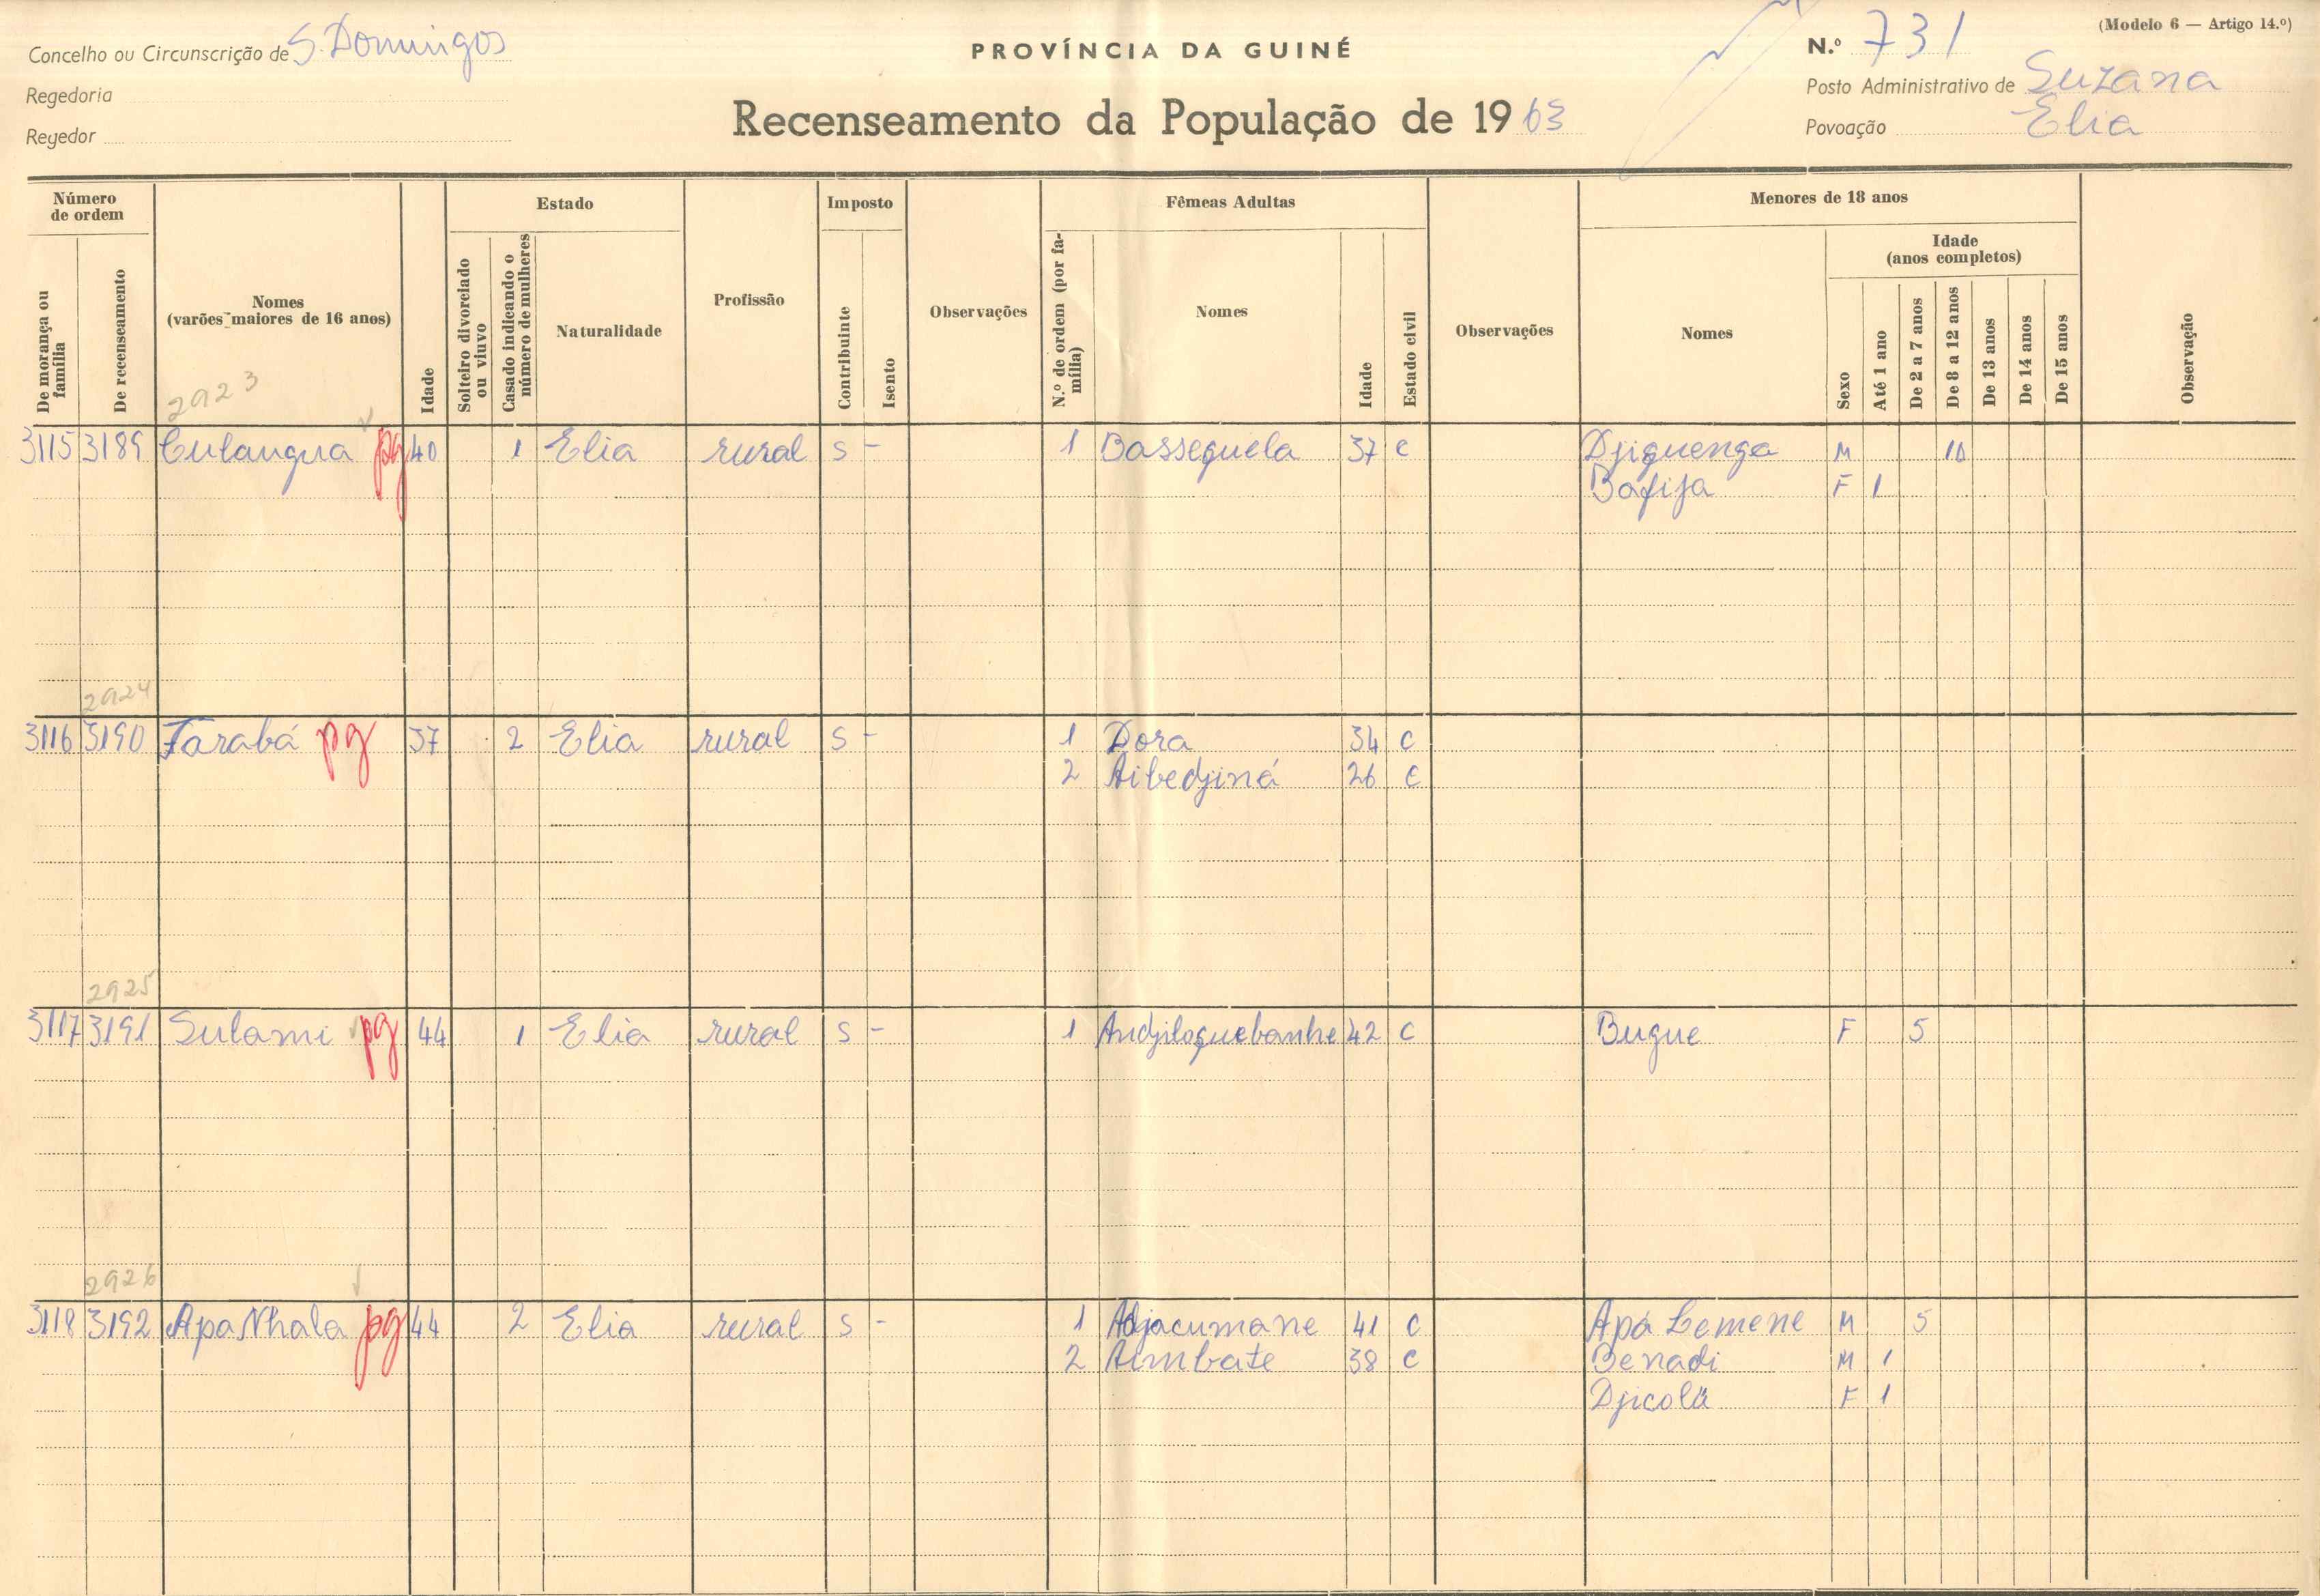 (Modelo 6 — Artigo 14.º)
Concelho ou Circunscrição de S. Domingos
PROVÍNCIA DA GUINÉ
N.º 731
Regedoria
Posto Administrativo de Suzana
Regedor
Recenseamento da População de 1963
Povoação Elia
Número de ordem
De morança ou família
De recenseamento
Nomes
(varões maiores de 16 anos)
Idade
Estado
Solteiro divorciado ou viuvo
Casado indicando o número de mulheres
Naturalidade
Profissão
Imposto
Contribuinte
Isento
Observações
Fêmeas Adultas
N.º de ordem (por família)
Nomes
Idade
Estado civil
Observações
Menores de 18 anos
Nomes
Sexo
Idade
(anos completos)
Até 1 ano
De 2 a 7 anos
De 8 a 12 anos
De 13 anos
De 14 anos
De 15 anos
Observação
2923
3115 3189 Culangua pg 40 1 Elia rural s - 1 Bassequela 37 c Djiguenga M 10
Bafija F 1
2924
3116 3190 Farabá pg 37 2 Elia rural s - 1 Dora 34 c
2 Aibedjiná 26 c
2925
3117 3191 Sulami pg 44 1 Elia rural s - 1 Andjiloquebanhe 42 c Bugue F 5
2926
3118 3192 Apa Nhala pg 44 2 Elia rural s - 1 Adjacumane 41 c Apá Lemene M 5
2 Aimbate 38 c Benadi M 1
Djicolá F 1